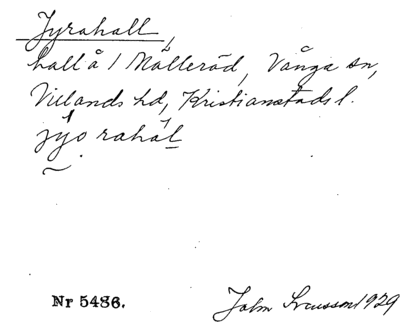 Jyrahall,
hall å / Mölleröd, Vånga sn,
Villands hd, Kristianstads l.
jyo rahal
Nr 5486.
John Svensson 1929